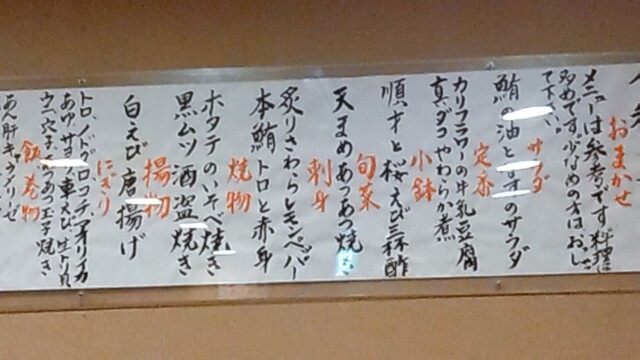 おまかせ
メニューは参考です 料理は
多めです 少なめの方はおし
て下さい
サラダ
鮪の油となすのサラダ
定番
カリフラワーの牛乳豆腐
真ダコやわらか煮
小鉢
順才と桜えび三杯酢
旬菜
天まめあつあつ焼
刺身
炙りさわらレモンペパー
本鮪トロと赤身
焼物
ホタテのいそべ焼き
黒ムツ酒盗焼き
揚物
白えび唐揚げ
にぎり
トロ、ノドグロ、コチ、アオリイカ
あゆ サヨリ 車えび 生トリ貝
ウニ 穴子 あつあつ玉子焼き
飯 巻物
あん肝キャラメリーゼ